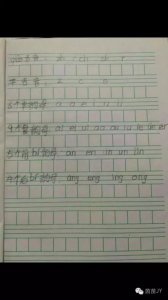 舌音: zh ch sh r
平舌音: z c s
6个单韵母 a o e i u ü
9个复韵母 ai ei ui ao ou iu ie üe er
5个前鼻韵母 an en in un ün
4个后鼻韵母 ang eng ing ong
茵茵JY